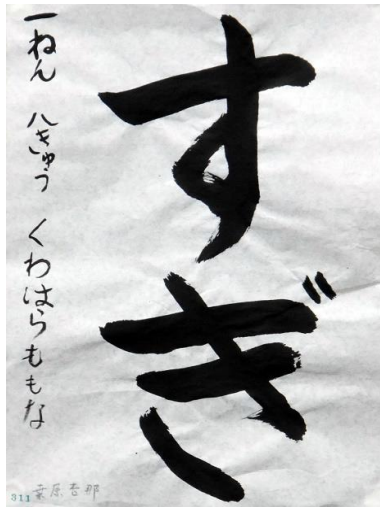 すぎ
一ねん 八きゅう くわはらももな
311 桒原杏那